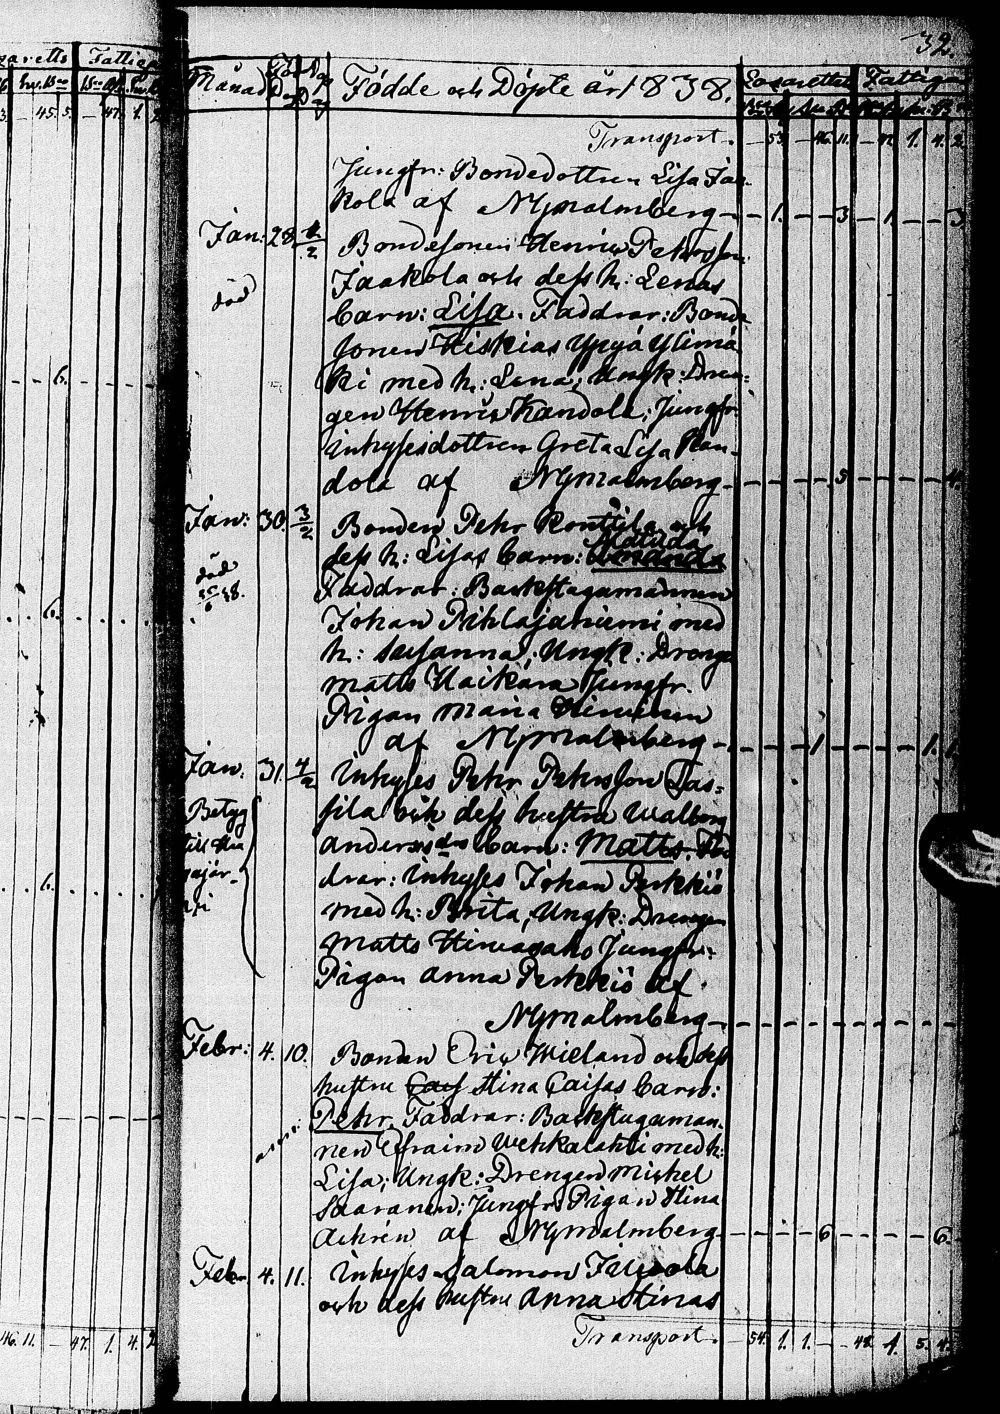 32.
Månad Född Döpt Födde och Döpte år 1838. Lazarettet Fattigen
Transport. — 53. — 46. 11. — 1. 4. 2.
Jungfr: Bondedottren Lisa Jaa-
kola af NyMalmberg — 1. — 3 — 1. — 3
Jan: 28. 1/2 Bondesonen Henric Pehrsson
Jaakola och dess h: Lenas
död
barn: Lisa. Faddrar: Bonde
sonen Hiskias Yrjä Ylimä
ki med h: Lena; Ungk: Dren-
gen Henric Kandola; Jungfr:
inhysesdottren Greta Lisa Kan-
dola af NyMalmberg — 3 — 4.
Jan: 30. 3/2 Bonden Pehr Konttila och
dess h: Lisas barn: Matilda
död
Faddrar: Backstugamannen
Johan Pihlajaniemi med
h: Susanna; Ungk: Dreng
Matts Haikara Jungfr.
Pigan Maria Hirvinen
af NyMalmberg — 1 — 1.
Jan. 31. 4/2 Inhyses Pehr Pehrsson Tas-
sila och dess hustru Walborg
Betyg
till
Andersdrs barn: Matts. Fad
drar: inhyses Johan Perkkiö
med h: Brita; Ungk: Drengen
Matts Jungfr:
Pigan Anna Perkkiö af
NyMalmberg —
Febr: 4. 10. Bonden Eric Wieland och dess
hustru Cajs Stina Caisas barn:
Pehr, Faddrar: Backstugaman-
nen Efraim Wehkalahti med h:
Lisa; Ungk: Drengen Mickel
Saaranen; Jungfr: Pigan Stina
af NyMalmberg — 6 — 6.
Feb. 4. 11. Inhyses Salomon
och dess hustru Anna Stinas
Transport. — 54. 1. 1. — 48. 1. 5. 4.